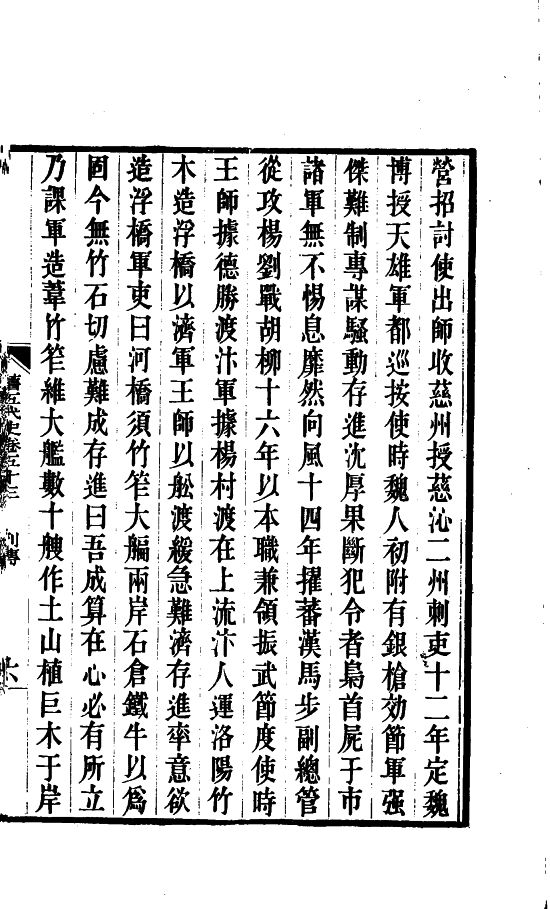 營招討使出師收慈州授慈沁二州刺吏十二年定魏
博授天雄軍都巡按使時魏人初附有銀槍効節軍强
傑難制專謀騷動存進沈厚果斷犯令者梟首屍于市
諸軍無不惕息靡然向風十四年擢蕃漢馬步副總管
從攻楊劉戰胡柳十六年以本職兼領振武節度使時
王師據德勝渡汴軍據楊村渡在上流汴人運洛陽竹
木造浮橋以濟軍王師以舩渡緩急難濟存進率意欲
造浮橋軍吏曰河橋須竹笮大艑兩岸石倉鐵牛以爲
固今無竹石切慮難成存進曰吾成算在心必有所立
乃課軍造葦竹笮維大艦數十艘作土山植巨木于岸
舊五代史卷五十三 列傳 六